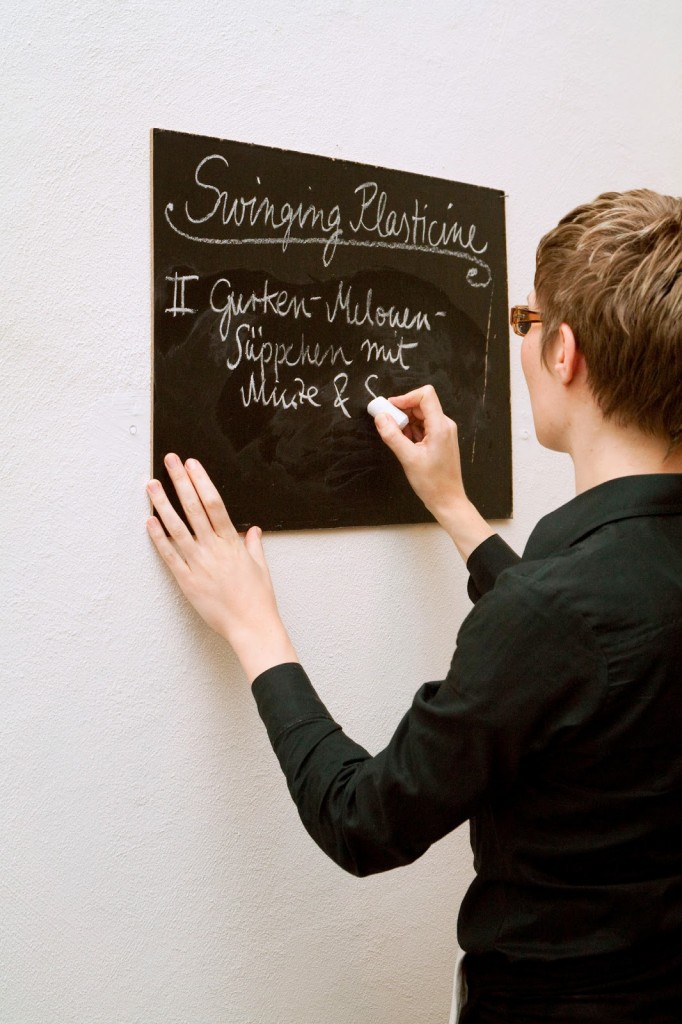 Swinging Plasticine
II Gurken-Melonen-
Süppchen mit
Minze & S